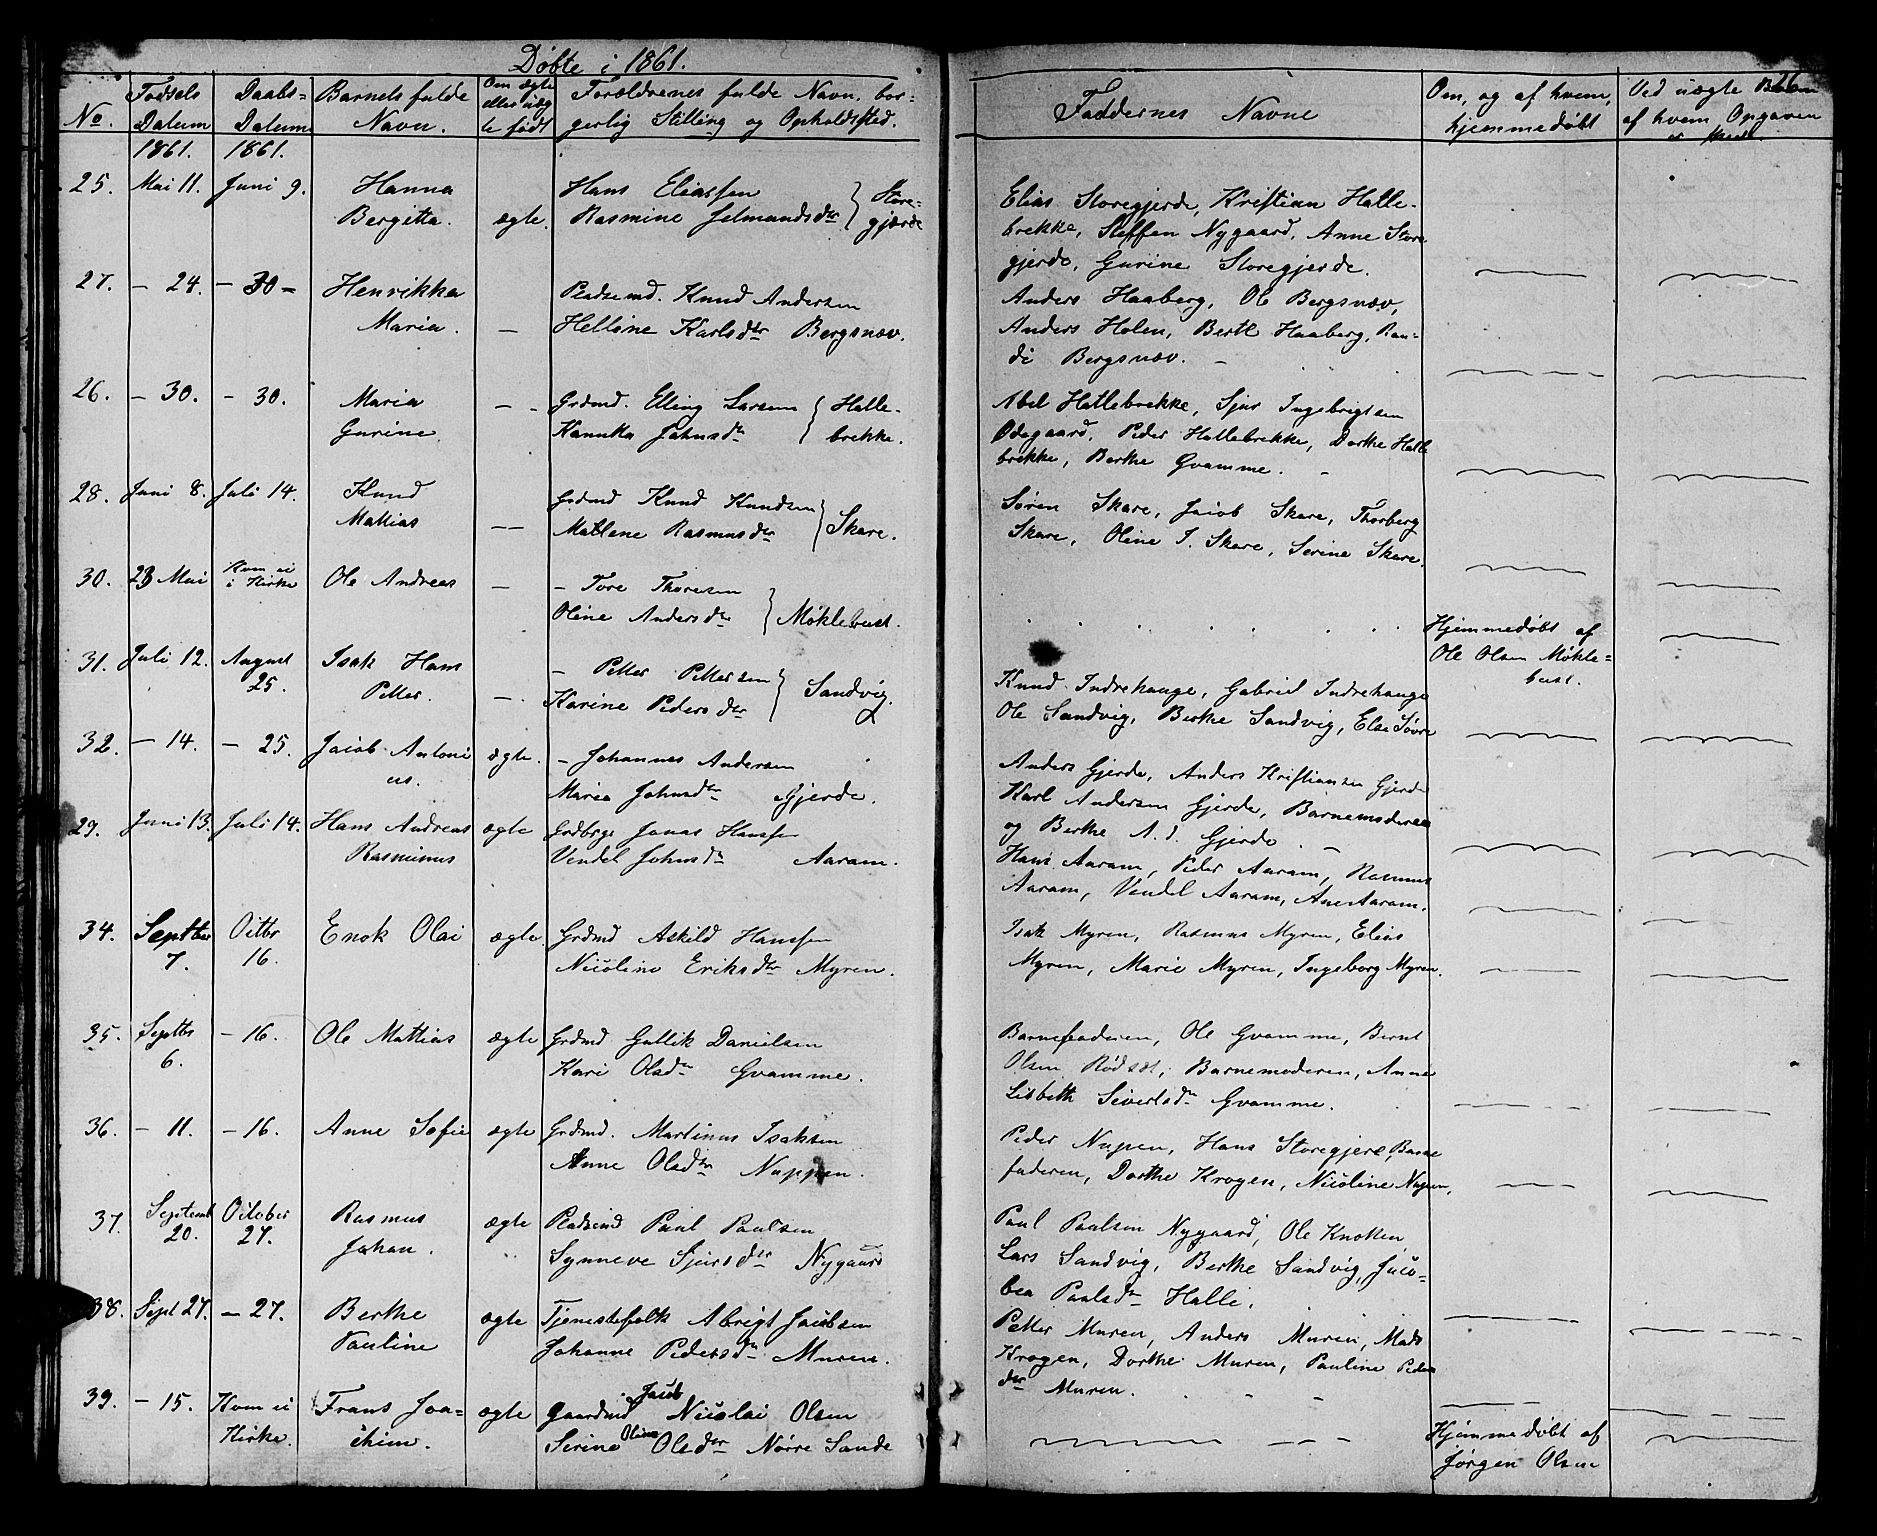 Døbte i 1861.
26
No.
Fødsels Datum
Daabs-Datum
Barnets fulde Navn.
Om ægte eller uægte født
Forældrenes fulde Navn, borgerlig Stilling og Opholdsted.
Faddernes Navne
Om, og af hvem, hjemmedøbt
Ved uægte Børn af hvem Opgaven er skeet
1861. 1861.
25. Mai 11. Juni 9. Hanna Hans Eliassen Store-
Bergitta. ægte. Rasmine Jetmundsdtr gjærde
Elias Storegjerde, Kristian Halle-
brekke, Steffen Nygaard, Anne Store
gjerde, Gurine Storegjerde.
27. – 24. – 30 – Henrikka Pladsmd. Knud Andersen
Maria. — Helline Karlsdtr Bergsnæv.
Anders Haaberg, Ole Bergsnæv,
Anders Holen, Berte Haaberg, Ran-
di Bergsnæv. –
26. – 30. – 30. Maria – – Grdmd. Elling Larsen Halle-
Gurine. Kanuka Johnsdtr brekke.
Abel Hatlebrekke, Sjur Ingebrigtsen
Ødegaard, Peder Hatlebrekke, Dorthe Hatle
brekke, Berthe Gvamme. –
28. Juni 8. Juli 14. Knud Grdmd Knud Knudsen
Mattias — Matlene Rasmusdtr Skare.
Søren Skare, Jacob Skare, Thorberg
Skare, Oline J. Skare, Serine Skare.
30. 23 Mai Kom ei i Kirke Ole Andreas — – Tore Thoresen
Oline Andersdtr Møklebust.
Hjemmedøbt af
Ole Olsen Møkle=
bust.
31. Juli 12. August 25. Isak Hans – Petter Pettersen
Petter. — Karine Pedersdtr Sandvig.
Knud Indrehauge, Gabriel Indrehauge
Ole Sandvig, Berthe Sandvig, Else Søvre
32. – 14. – 25. Jacob Antoni ægte. – Johannes Andersen
us. Maria Johnsdtr Gjerde.
Anders Gjerde, Anders Kristiansen Gjerde
Karl Andersen Gjerde, Barnemoderen
og Berthe A. d. Gjerde. –
29. Juni 13. Juli 14. Hans Andreas ægte Grdbrgr Jonas Hansen
Rasmus Vendel Johnsdtr Aaram.
Hans Aaram, Peder Aaram, Rasmus
Aaram, Vendel Aaram, Ane Aaram.
34. Septbr 7. Octbr 16. Enok Olai ægte Grdmd Askild Hanssen
Nicoline Eriksdtr Myren.
Isak Myren, Rasmus Myren, Elias
Myren, Marie Myren, Ingeborg Myren.
35. Septbr 6. – 16. Ole Mattias ægte Grdmd Gullik Danielsen
Kari Olsdtr Gvamme.
Barnefaderen, Ole Gvamme, Bernt
Olsen Rødsæt, Barnemoderen, Anne
Lisbeth Sivertsdtr Gvamme.
36. – 11. – 16. Anne Sofie ægte Grdmd. Martinus Isaksen
Anne Olsdtr Nuppen.
Peder Nupen, Hans Storegjere, Barne
faderen, Dorthe Krogen, Nicoline Nupen,
37. Septemb 20. October 27. Rasmus ægte Pladsmd Paul Paulsen
Johan. Synneve Sjursdtr Nygaard
Paul Paulsen Nygaard, Ole Knotten
Lars Sandvig, Berthe Sandvig, Jaco-
bea Paulsdtr Halle.
38. Sept 27. – 27. Berthe ægte Tjenestefolk Abrigt Jacobsen
Pauline Johanne Pedersdtr Muren.
Petter Muren, Anders Muren, Mads
Krogen, Dorthe Muren, Pauline Peders
dtr Muren.
39. – 15. Kom ei Frans Joa= ægte Gaardmd Jacob Nicolai Olsen
Kirke. chim. Serine Oline Olsdtr Nørre Sande
Hjemmedøbt af
Jørgen Olsen